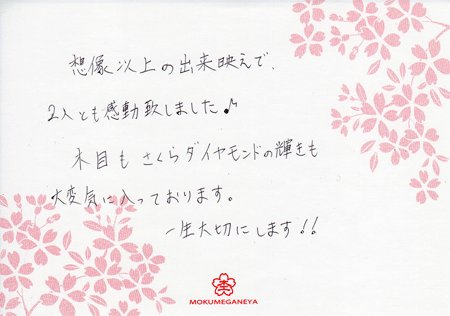 想像以上の出来映えで、
2人とも感動致しました♪
木目も さくらダイヤモンドの輝きも
大変気に入っております。
一生大切にします!!
MOKUMEGANEYA